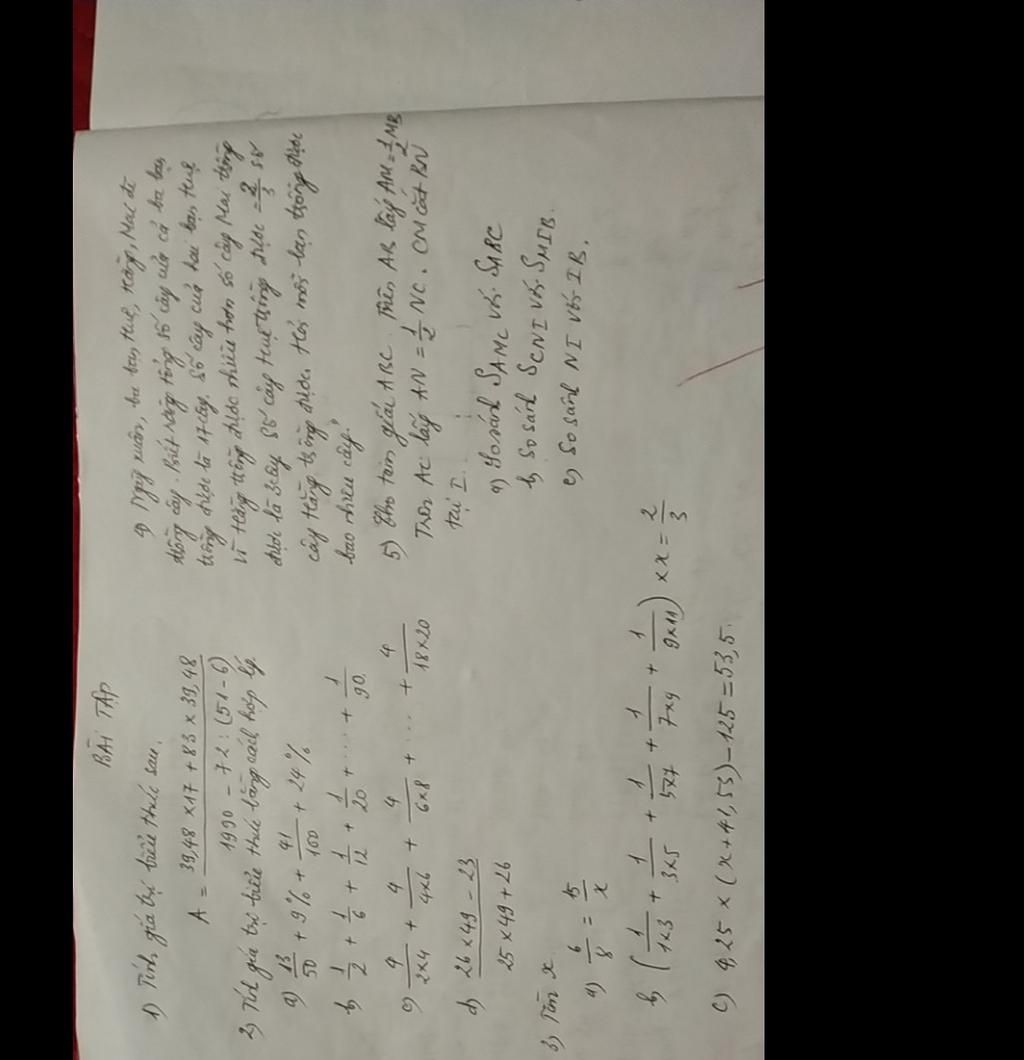 BÀI TẬP
1) Tính giá trị biểu thức sau.
A = \frac{39,48 x 17 + 83 x 39,48}{1990 - 72 : (51 - 6)}
2) Tính giá trị biểu thức bằng cách hợp lý.
a) \frac{13}{50} + 9% + \frac{41}{100} + 24%
b) \frac{1}{2} + \frac{1}{6} + \frac{1}{12} + \frac{1}{20} + .... + \frac{1}{90}.
c) \frac{4}{2x4} + \frac{4}{4x6} + \frac{4}{6x8} + .... + \frac{4}{18x20}
d) \frac{26 x 49 - 23}{25 x 49 + 26}
3) Tìm x.
a) \frac{6}{8} = \frac{15}{x}
b) ( \frac{1}{1x3} + \frac{1}{3x5} + \frac{1}{5x7} + \frac{1}{7x9} + \frac{1}{9x11} ) x x = \frac{2}{3}
c) 4,25 x (x + 41,53) - 125 = 53,5.
4) Ngày xuân, ba bạn Huệ, Hằng, Mai đi
trồng cây. Biết rằng tổng số cây của cả ba bạn
trồng được là 17 cây, số cây của hai bạn Huệ
và Hằng trồng được nhiều hơn số cây Mai trồng
được là 3 cây số cây Huệ trồng được = \frac{2}{3} số
cây Hằng trồng được. Hỏi mỗi bạn trồng được
bao nhiêu cây?
5) Cho tam giác ABC. Trên AB lấy AM = \frac{1}{2} MB
Trên AC lấy AN = \frac{1}{2} NC. CM cắt BN
tại I.
a) So sánh S_{AMC} với S_{ABC}
b) So sánh S_{CNI} với S_{MIB}.
c) So sánh NI với IB.